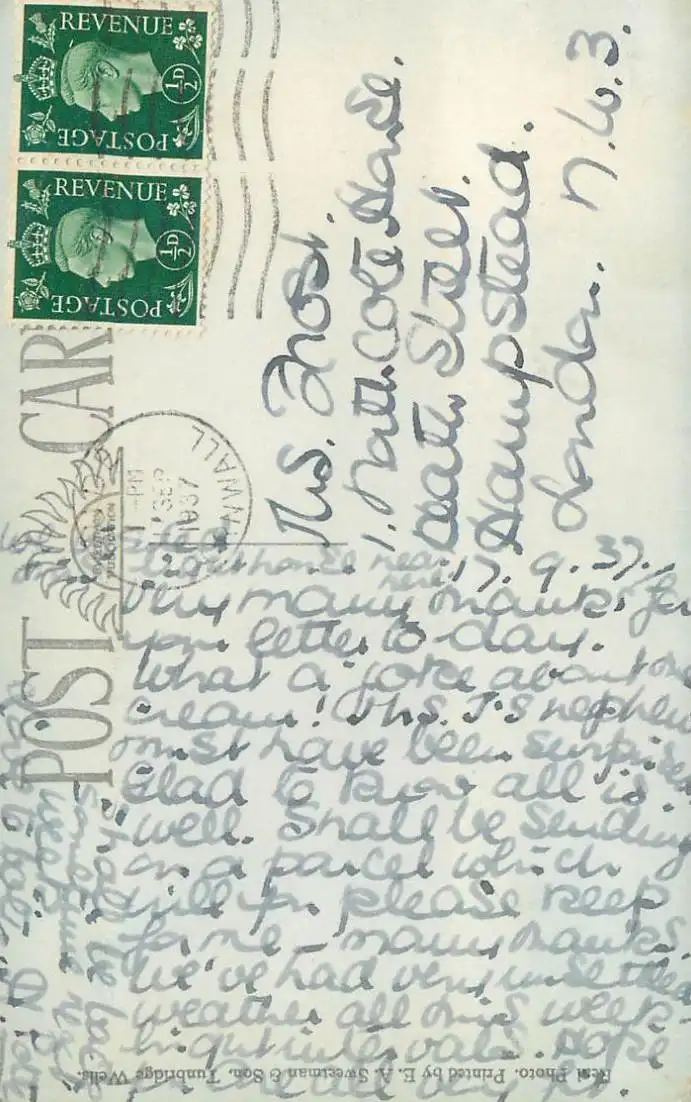 POST CARD
REVENUE
½D
POSTAGE
REVENUE
½D
POSTAGE
PM
SEP
1937
Mrs. Frost.
1. Northcote House.
Heath Street.
Hampstead.
London. N.W.3.
Lighthouse near
here 17. 9. 37.
Very many thanks for
your letter to day.
What a joke about the
cream! Mrs. J's nephew
must have been surprised
Glad to know all is
well. Shall be sending
on a parcel which
will you please keep
for me - many thanks.
We've had very unsettled
weather all this week -
bright intervals. Hope
all very fit.
shall be back
some time next
week
Real Photo. Printed by E. A. Sweetman & Son, Tunbridge Wells.